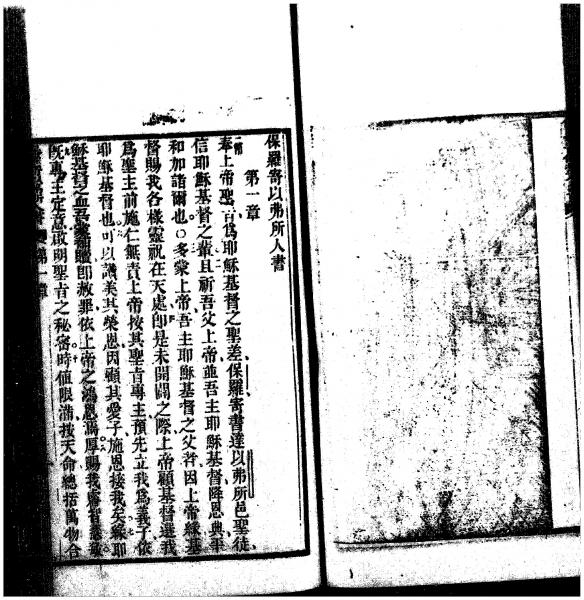 保羅寄以弗所人書
第一章
奉上帝聖旨爲耶穌基督之聖差保羅寄書達以弗所邑聖徒
信耶穌基督之輩且祈吾父上帝並吾主耶穌基督降恩典平
和加諸爾也○多蒙上帝吾主耶穌基督之父者因上帝緣基
督賜我各樣靈祝在天處卽是未開闢之際上帝顧基督選我
爲聖主前施仁無責上帝按其聖旨專主預先立我爲義子依
耶穌基督也可以讚美其榮恩因顧其愛子施恩接我矣緣耶
穌基督之血吾蒙贖卽赦罪依上帝之鴻恩焉厚賜我
旣專主定意啟明聖旨之秘密時值限滿按天命總括萬物合
第一章